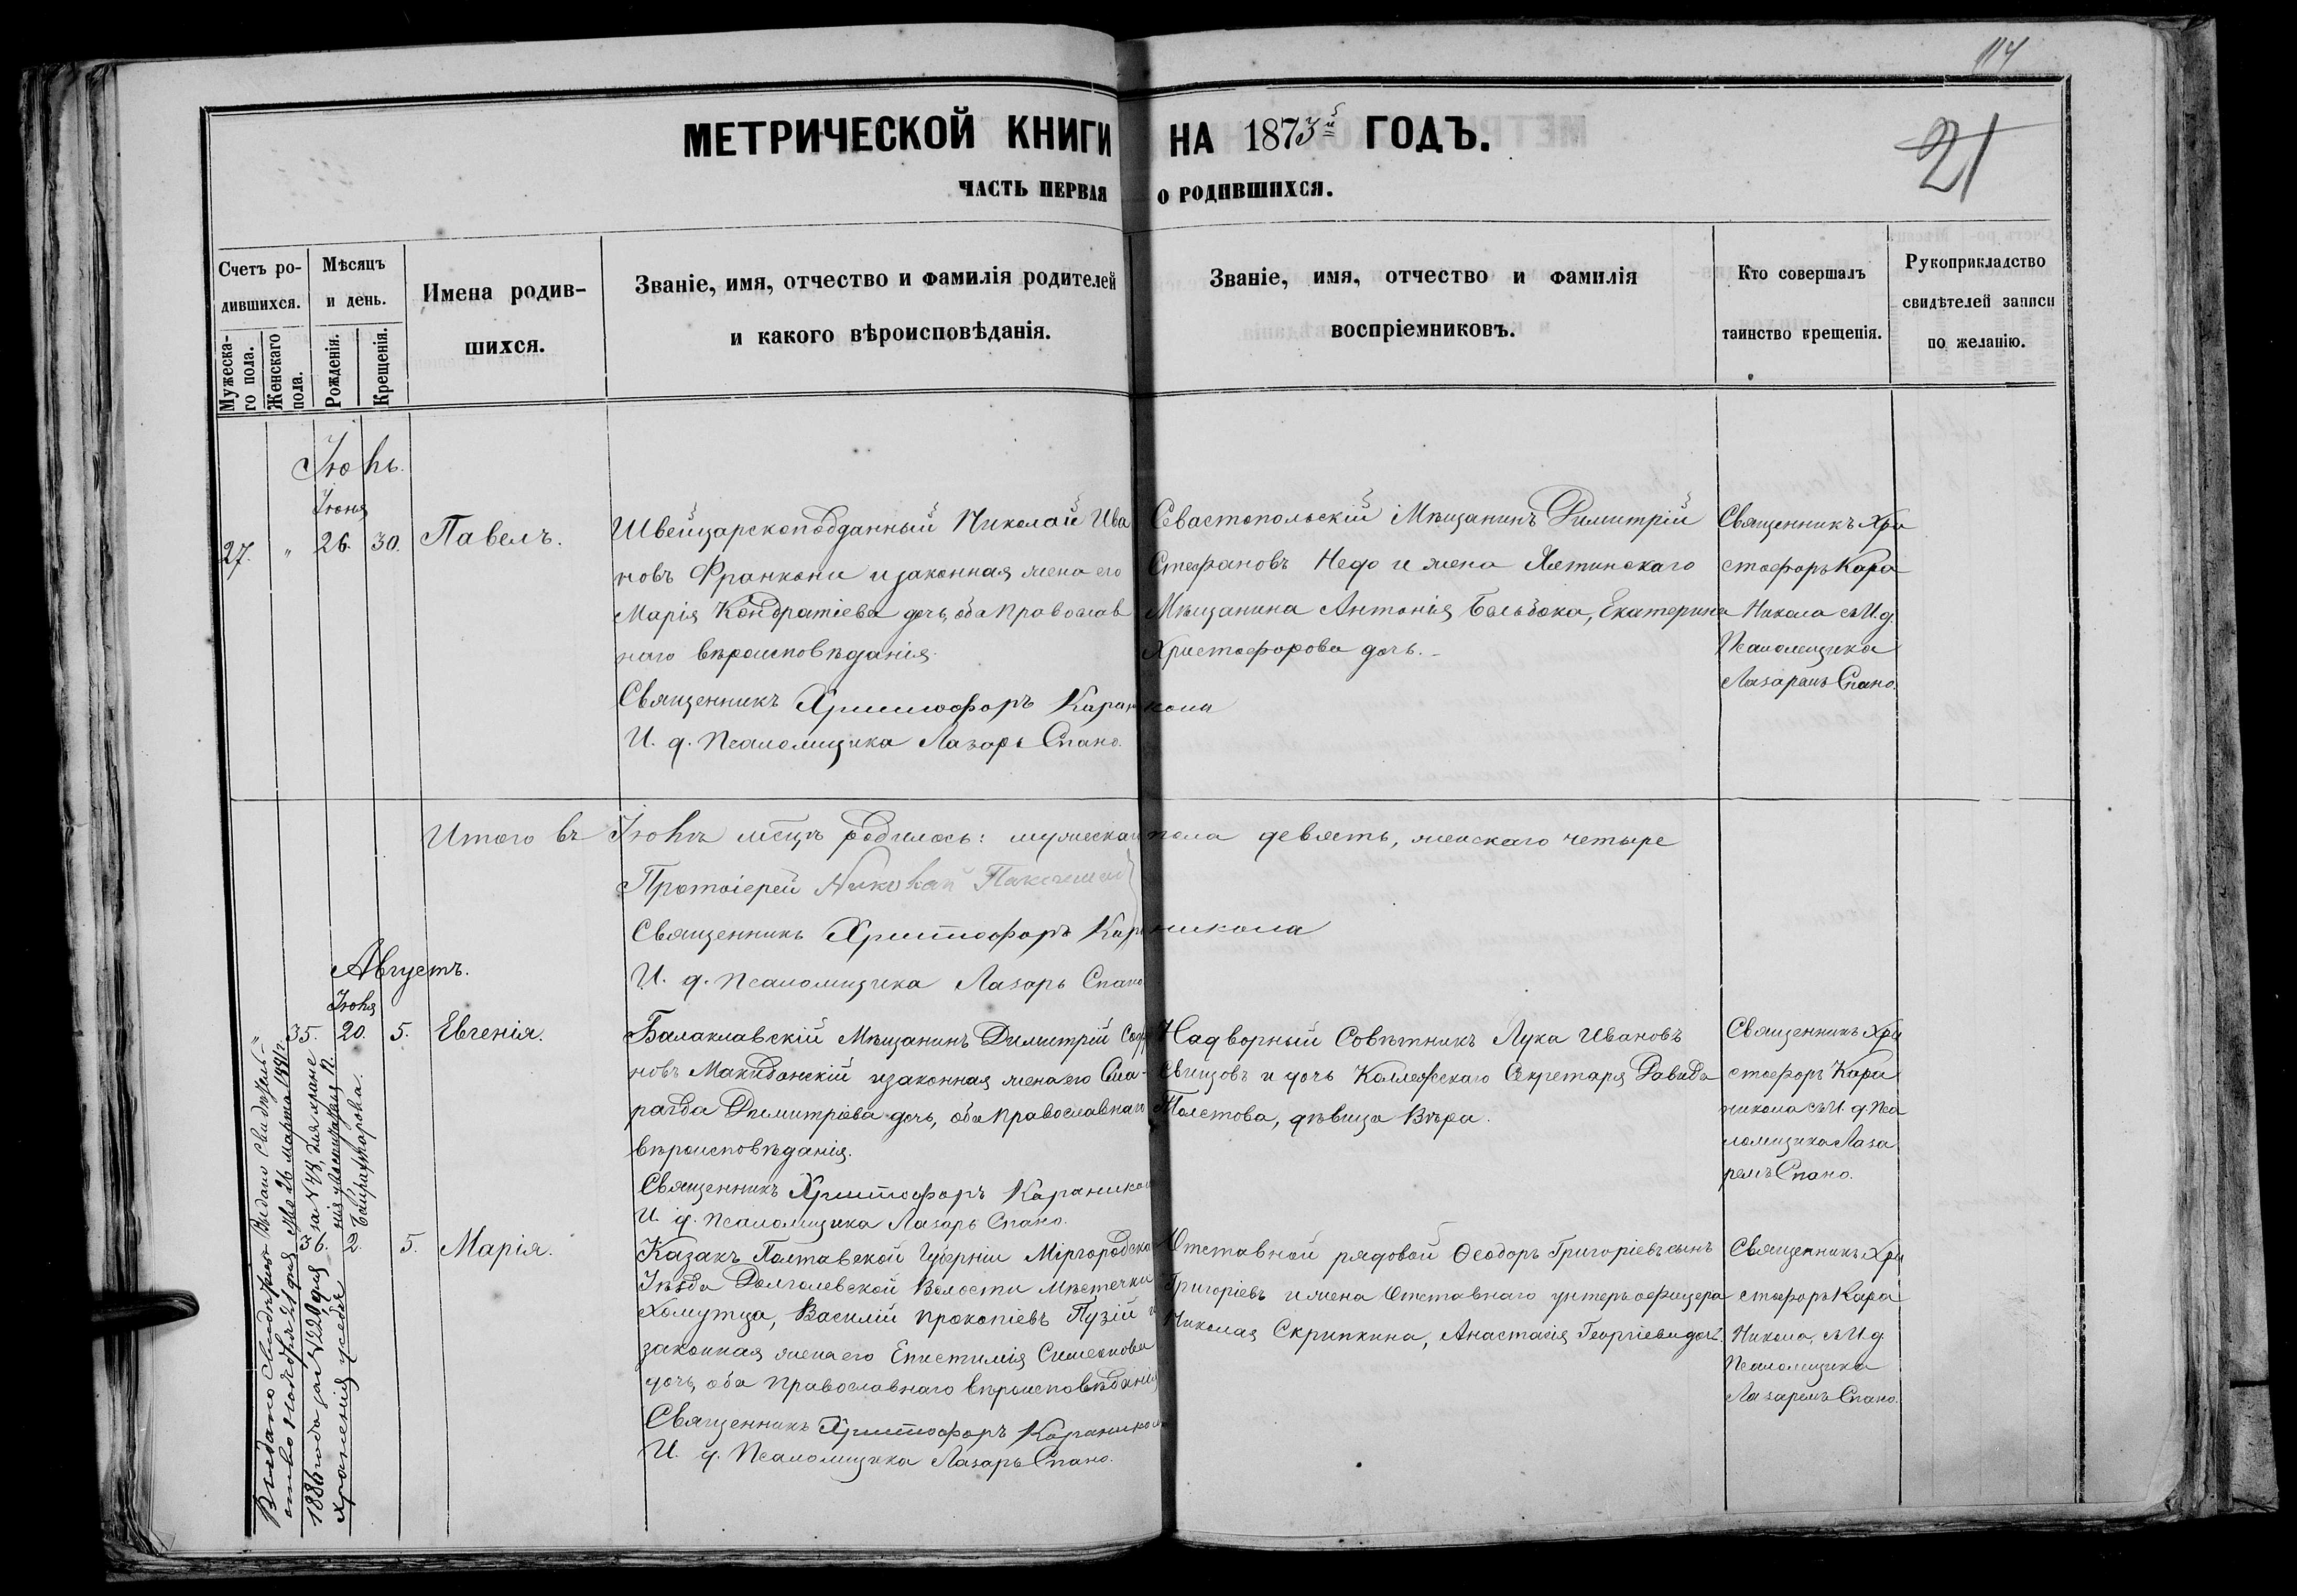 114
21
МЕТРИЧЕСКОЙ КНИГИ НА 1873й ГОДЪ.
ЧАСТЬ ПЕРВАЯ О РОДИВШИХСЯ.
Счетъ ро-
дившихся.
Мужеска-
го пола.
Женскаго
пола.
Мѣсяцъ
и день.
Рожденія.
Крещенія.
Имена родив-
шихся.
Званіе, имя, отчество и фамилія родителей
и какого вѣроисповѣданія.
Званіе, имя, отчество и фамилія
воспріемниковъ.
Кто совершалъ
таинство крещенія.
Рукоприкладство
свидѣтелей записи
по желанію.
Іюнь.
Іюня
27. " 26. 30. Павелъ.
Швейцарскоподданный Николай Ива
новъ Франкони и законная жена его
Марія Кондратіева дочь, оба православ
наго вѣроисповѣданія.
Священникъ Христофоръ Караникола
И. д. Псаломщика Лазарь Спано.
Севастопольскій Мѣщанинъ Димитрій
Стефановъ Недо и жена Ялтинскаго
Мѣщанина Антонія Бальбока, Екатерина
Христофорова дочь.
Священникъ Хри
стофоръ Кара
Никола съ И. д.
Псаломщика
Лазаремъ Спано.
Итого въ Іюнѣ мѣсцѣ родилось: мужескаго пола девять, женскаго четыре
Протоіерей Николай
Священникъ Христофоръ Караникола
И. д. Псаломщика Лазарь Спано
Августъ.
Іюня
35. 20. 5. Евгенія.
Балаклавскій Мѣщанинъ Димитрій
новъ Македонскій и законная жена его Сма-
рагда Димитріева дочь, оба православнаго
вѣроисповѣданія.
Священникъ Христофоръ Караникола
И. д. Псаломщика Лазарь Спано.
Надворный Совѣтникъ Лука Ивановъ
Свищовъ и дочь Коллежскаго Секретаря Давида
Толстова, дѣвица Вѣра.
Священникъ Хри
стофоръ Кара
никола съ И. д. Пса
ломщика Лаза
ремъ Спано.
36. 22. 5. Марія.
Казакъ Полтавской Губерніи Миргородска
Уѣзда Долголевской Волости Мѣстечка
Хомутца, Василій Прокопіевъ Пузій и
законная жена его Епистимія Симеонова
дочь, оба православнаго вѣроисповѣданія
Священникъ Христофоръ Караникола
И. д. Псаломщика Лазарь Спано.
Отставной рядовой Ѳеодоръ Григоріевъ сынъ
Григоріевъ и жена Отставнаго унтеръ офицера
Николая Скрипкина, Анастасія Георгіева дочь.
Священникъ Хри
стофоръ Кара
Никола, съ И. д.
Псаломщика
Лазаремъ Спано.
Выдано Свидѣтель-
ство
1886 года за № 220 для
храненія у себя
Выдано Свидѣтель-
26 марта 1891 г.
за № 48, для хране